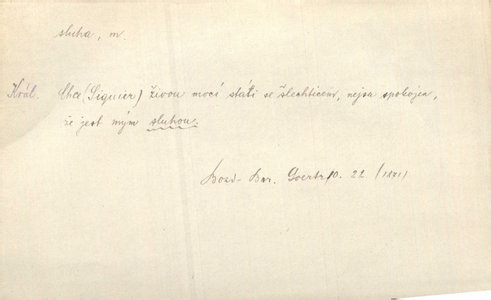 sluha, m.
Král. Chce (Signier) živou mocí státi se šlechticem, nejsa spokojen,
že jest mým sluhou.
Bozd- Bar. Goertz, 10. 22. /1871/